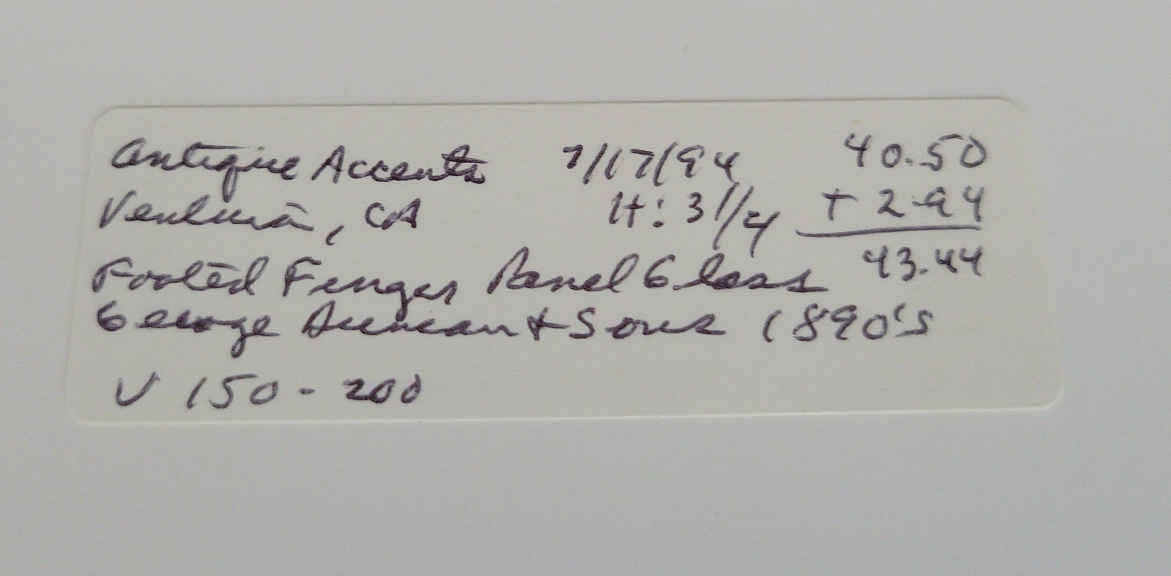 Antique Accents 7/17/94 40.50
Ventura, CA H: 3 1/4 + 2.94
Footed Finger Panel Glass 43.44
George Duncan & Sons 1890's
V 150 - 200